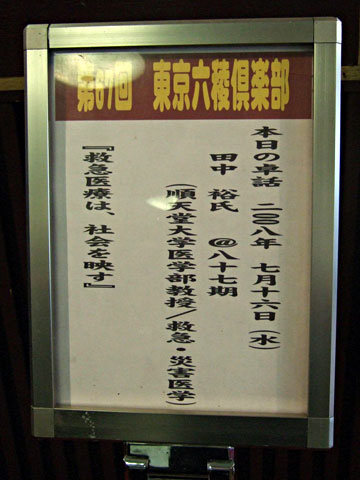 第67回 東京六稜倶楽部
本日の卓話 二〇〇八年 七月十六日(水)
田中 裕氏 @八十七期
(順天堂大学医学部教授/救急・災害医学)
『救急医療は、社会を映す』